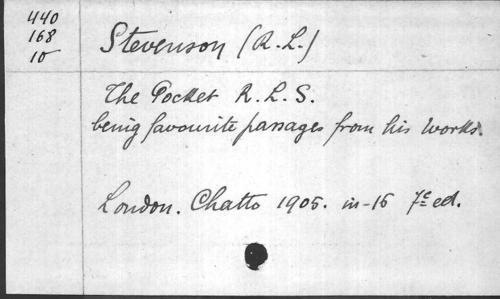 440
168
10
Stevenson (R.L.)
The Pocket R.L.S.
being favourite passages from his works.
London. Chatto 1905. in-16 7e ed.